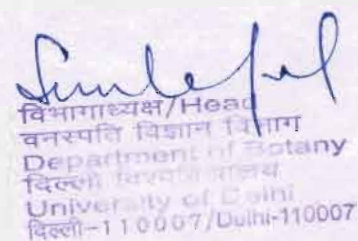 विभागाध्यक्ष/Head
वनस्पति विज्ञान विभाग
Department of Botany
दिल्ली विश्वविद्यालय
University of Delhi
दिल्ली-110007/Delhi-110007